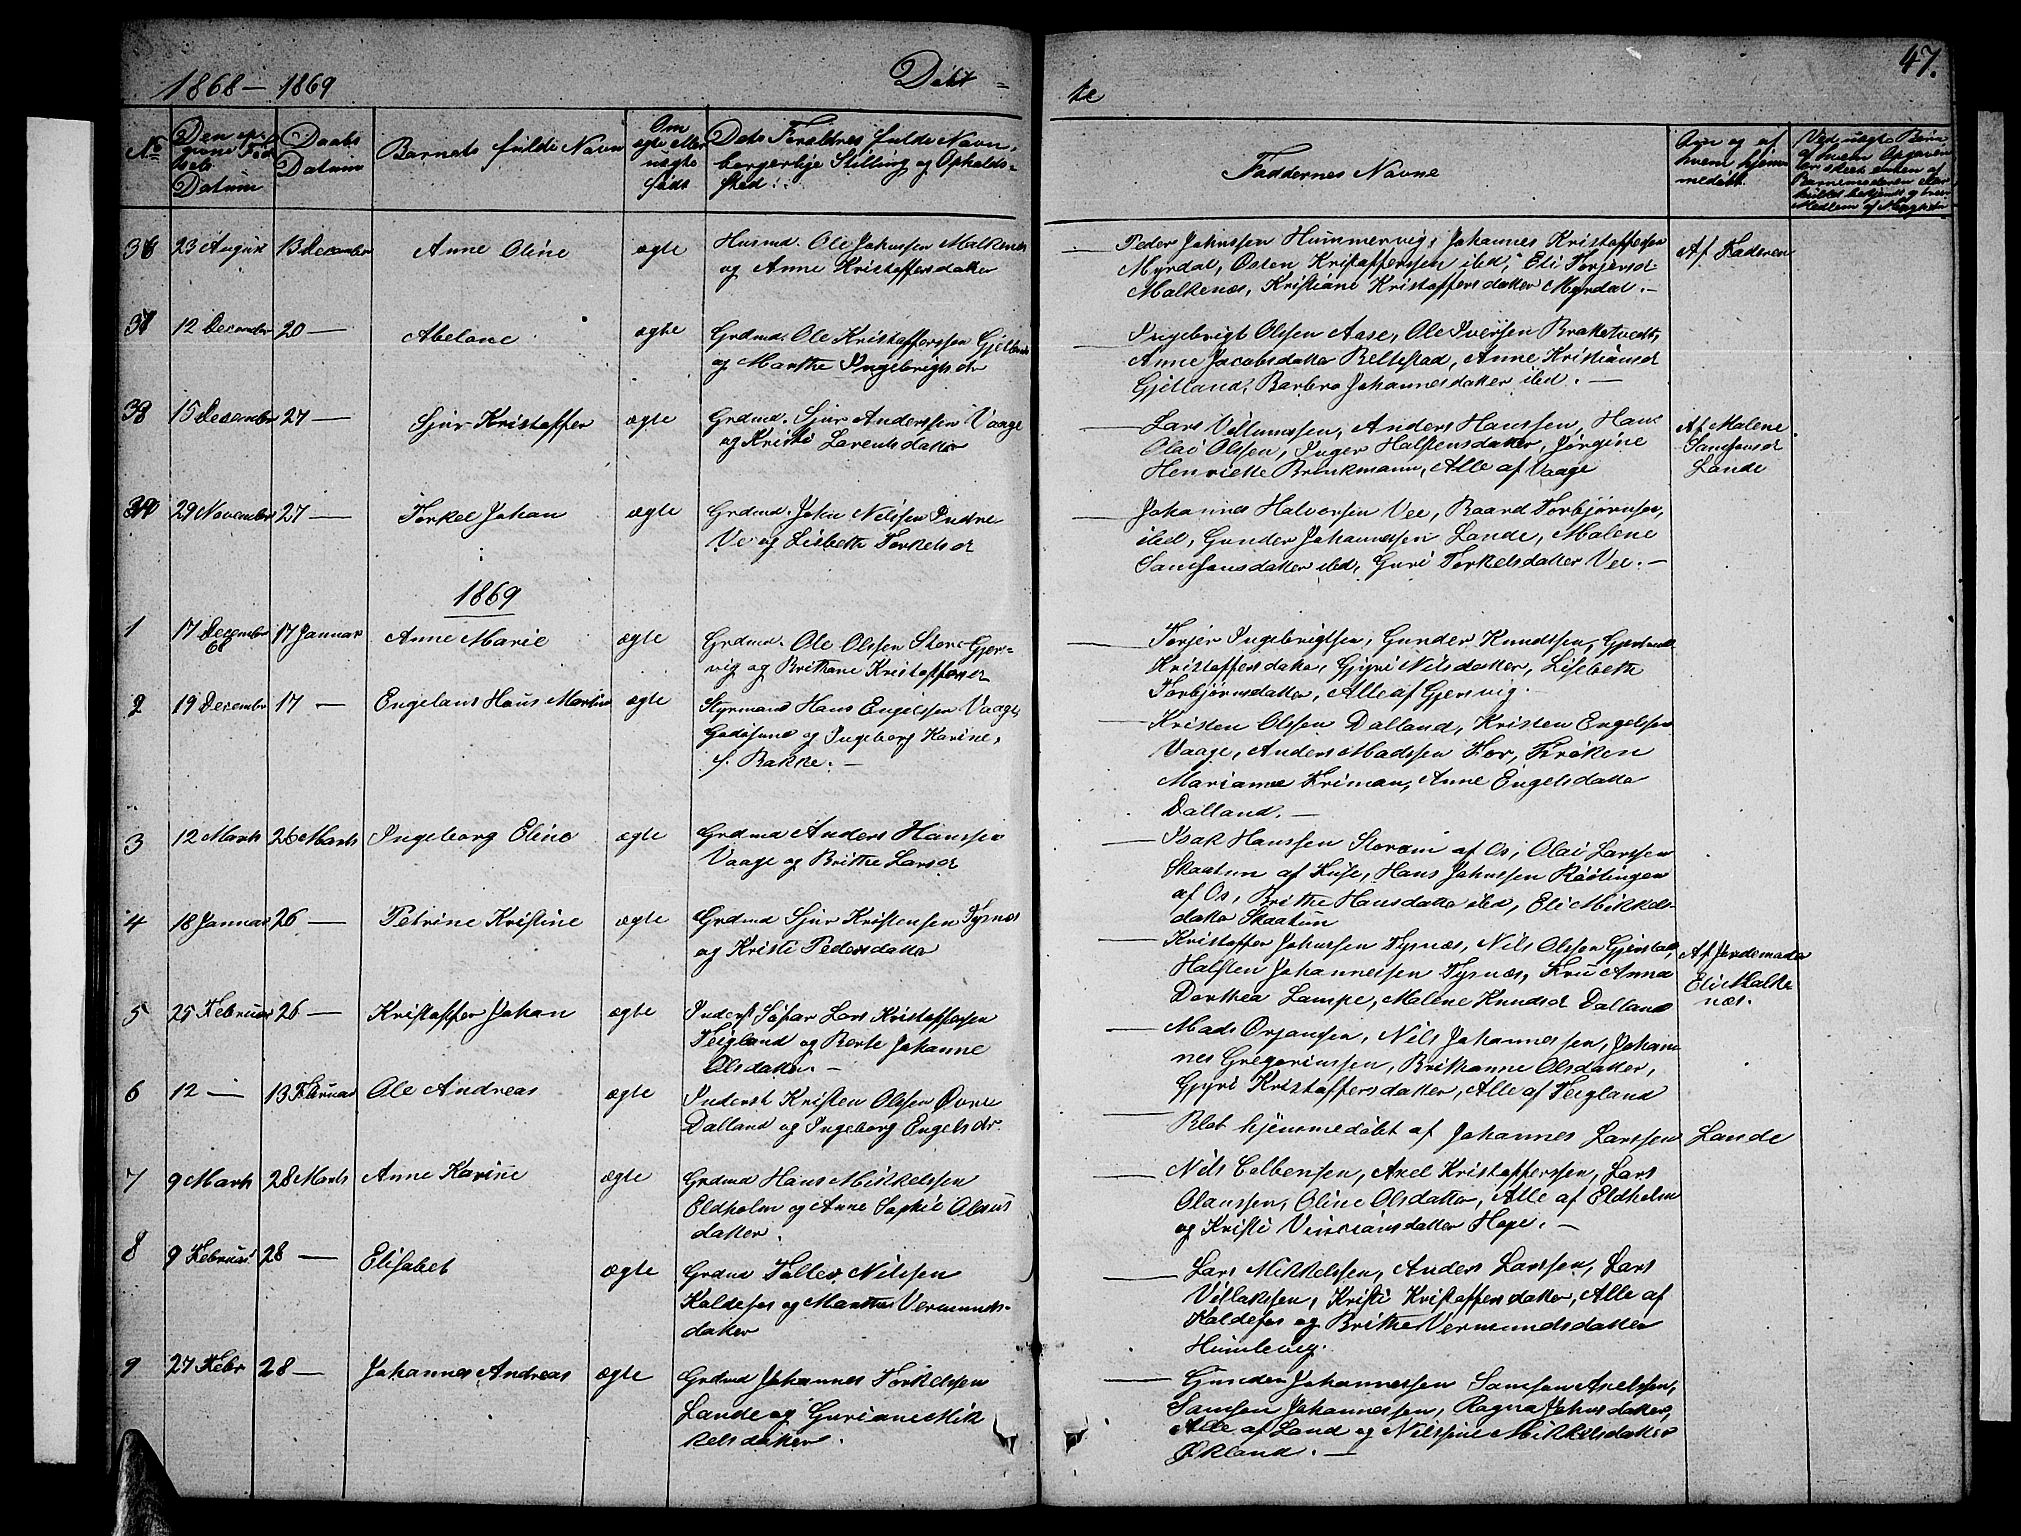 47.
1868 – 1869
Døbt =
te
No
Den opgivne Fødsels Datum
Daabs Datum
Barnets fulde Navn
Om ægte eller uægte født
Dets Forældres fulde Navn, borgerlige Stilling og Opholdssted
Faddernes Navne
Om og af hvem hjemmedøbt
36 23 August 13 December Anne Oline ægte Husmd. Ole Johnssen Malkenes
og Anne Kristoffersdatter
Peder Johnssen Hummervig, Johannes Kristoffersen
Myrdal, Østen Kristofferssen ibid, Eli Torjersd
Malkenæs, Kristiane Kristoffersdatter Myrdal. –
Af Faderen
37 12 December 20 – Abelone ægte Grdmd. Ole Kristofferssen Gjelland
og Marthe Ingebrigtsdr
Ingebrigt Olssen Aase, Ole Iverssen Braketvedt,
Anne Jacobsdatter Beltestad, Anne Kristiansd
Gjelland, Barbro Johannesdatter ibid. –
38 15 December 27 – Sjur Kristoffer ægte Grdmd. Sjur Anderssen Vaage
og Kristi Larentsdatter
Lars Villumssen, Anders Hanssen, Hans
Olai Olssen, Inger Halstensdatter, Jørgine
Henriette Brinkmann, Alle af Vaage
Af Malene
Samsonsd
Lande
39 29 November 27 – Torkel Johan ægte Grdmd. John Nilssen Indre
Ve og Lisbeth Torkelsd
Johannes Halvorsen Vee, Baard Torbjørnsen,
ibid, Gunder Johannessen Lande, Malene
Samsonsdatter ibid, Guri Torkelsdatter Vee. –
1869
1 17 December 68 17 Januar Anne Marie ægte Grdmd. Ole Olssen Store Gjer=
vig og Brithane Kristoffersd
Torjer Ingebrigtsen, Gunder Knudssen, Gjertrud
Kristoffersdatter, Gjyri Nilsdatter, Lisbeth
Torbjørnsdatter, Alle af Gjervig. –
2 19 December 17 – Engelaus Hans Martin ægte Styrmand Hans Engelssen Vaage
Godøsund og Ingeborg Karine,
f. Bakke. –
Kristen Olssen Dalland, Kristen Engelssen
Vaage, Anders Madssen Hor, Frøken
Marianne Friman, Anne Engelsdatter
Dalland. –
3 12 Marts 26 Marts Ingeborg Eline ægte Grdmd Anders Hanssen
Vaage og Brithe Larsd
Isak Hanssen Storøen af Os, Olai Larssen
Skaatun af Fuse, Hans Johnssen Røttingen
af Os, Brithe Hansdatter ibid, Eli Mikkels
datter Skaatun
4 18 Januar 26 – Petrine Kristine ægte Grdmd Sjur Kristensen Tysnæs
og Kristi Pedersdatter
Kristoffer Johnssen Tysnæs, Nils Olssen Gjerstad,
Halsten Johannessen Tysnæs, Fru Anna
Dorthea Lampe, Malene Knudsd Dalland
Af Jordemoder
Eli Malke
næs.
5 25 Februar 26 – Kristoffer Johan ægte Inderst Søfar Lars Kristoffersen
Teigland og Berte Johanne
Olsdatter. –
Mads Ørjanssen, Nils Johannessen, Johan
nes Gregoriussen, Brithanne Olsdatter,
Gjyri Kristoffersdatter, Alle af Teigland
6 12 – 13 Februar Ole Andreas ægte Inderst Kristen Olssen Øvre
Dalland og Ingeborg Engelsdr.
Blot hjemmedøbt af Johannes Larssen Lande
7 9 Marts 28 Marts Anne Karine ægte Grdmd Hans Mikkelssen
Eldholm og Anne Sophie Olaus
datter.
Nils Colbensen, Axel Kristofferssen, Lars
Olaussen, Oline Olsdatter, Alle af Eldholm
og Kristi Vinciansdatter Hope. –
8 9 Februar 28 – Elisabet ægte Grdmd Tollev Nilssen
Kaldefos og Marthe Vermunds=
datter
Lars Mikkelssen, Anders Larssen, Lars
Villakssen, Kristi Kristoffersdatter, Alle af
Kaldefos og Brithe Vermundsdatter
Humlevig.
9 27 Febr 28 – Johannes Andreas ægte Grdmd Johannes Torkelssen
Lande og Guriane Mik
kelsdatter.
Gunder Johannessen Samson Axelssen,
Samson Johannessen, Ragna Johnsdatter,
Alle af Land og Nilsine Mikkelsdatter
Økland. –